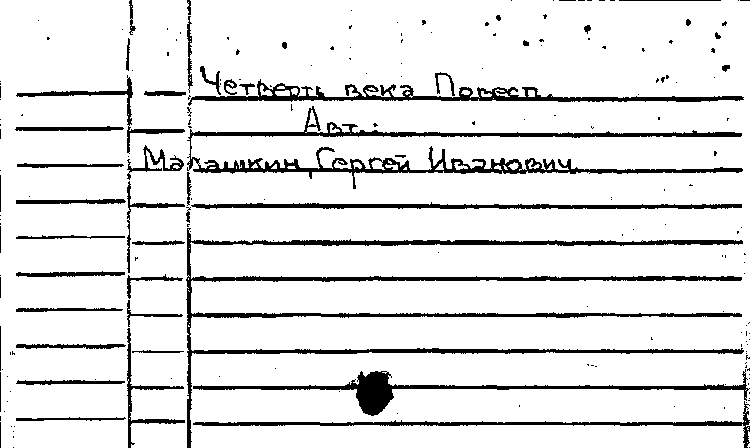 Четверть века Повесть.
Авт.:
Малашкин, Сергей Иванович